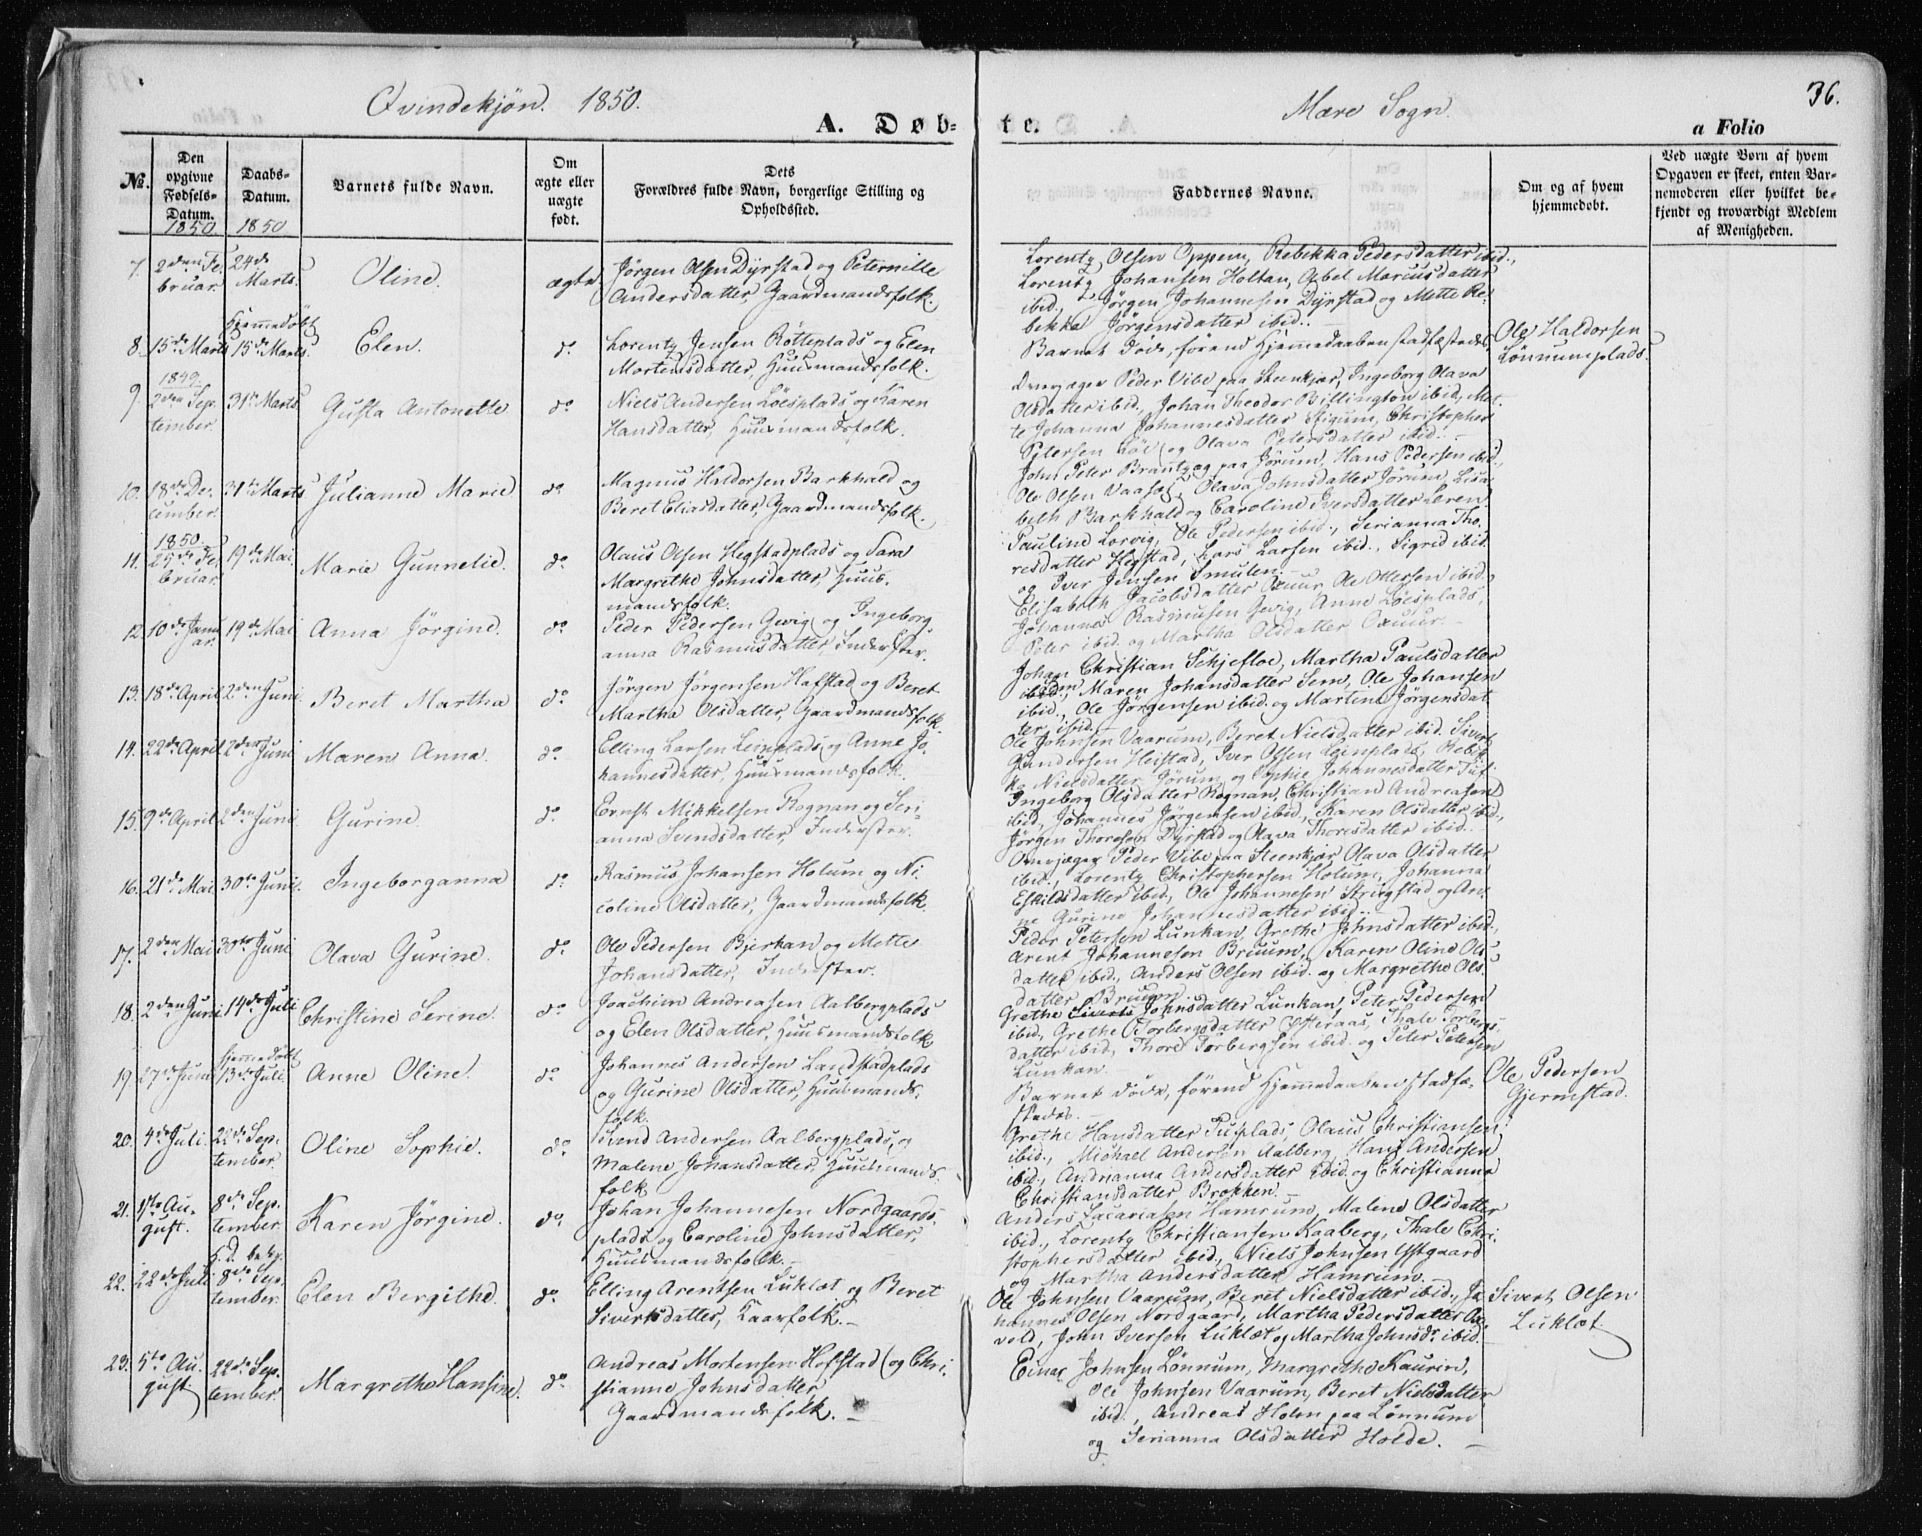 Qvindekjøn. 1850.
Mære Sogn.
36.
A. Døb-
te.
a Folio
No.
Den opgivne Fødsels-Datum. 1850
Daabs-Datum. 1850
Barnets fulde Navn.
Om ægte eller uægte født.
Dets Forældres fulde Navn, borgerlige Stilling og Opholdssted.
Faddernes Navne.
Om og af hvem hjemmedøbt.
Ved uægte Børn af hvem Opgaven er skeet, enten Barnemoderen eller hvilket bekjendt og troværdigt Medlem af Menigheden.
7. 2den Februar. 24de Marts. Oline. ægte
Jörgen Olsen Dyrstad og Peternille
Andersdatter Gaardmandsfolk.
Lorentz Olsen Oppem, Rebekka Pedersdatter ibid.,
Lorentz Johansen Holtan, Asbel Marcusdatter
ibid., Jörgen Johannesen Dyrstad og Mette Re-
bekka Jörgensdatter ibid.
8. 15de Marts Hjemmedöbt 15de Marts. Elen. do.
Lorentz Jensen Rötteplads og Elen
Mortensdatter, Huusmandsfolk.
Barnet döde, förend Hjemmedaaben stadfæstedes.
Ole Haldorsen
Lönnumsplads.
9. 1849 2den September. 31te Marts. Gusta Antonette do
Niels Andersen Löesplads og Karen
Hansdatter, Huusmandsfolk.
Overjæger Peder Vibe paa Steenkjær, Ingeborg Olava
Olsdatter ibid., Johan Theodor Billington ibid., Met-
te Johanna Johannesdatter Stigum, Christopher
Petersen Löe og Olava Petersdatter ibid. -
10. 18de December. 31te Marts Julianne Marie do
Magnus Haldorsen Barkhald og
Beret Eliasdatter, Gaardmandsfolk.
John Peter Brantzæg paa Jörum, Hans Pedersen ibid.,
Ole Olsen Vaasaf, Olava Johnsdatter Jörum, Lisa-
beth Barkhald og Caroline Iversdatter Leren.
11. 1850 25de Februar. 19de Mai. Marie Gunnelie. do.
Olaus Olsen Hegstadplads og Sara
Margrethe Johnsdatter, Huus-
mandsfolk.
Pauline Lorvig, Ole Pedersen ibid., Serianna Tho-
resdatter Hegstad, Lars Larsen ibid., Sigrid ibid.
og Iver Jensen Smulen. -
12. 10de Januar. 19de Mai Anna Jörgine. do
Peder Pedersen Gevig og Ingeborg
anna Rasmusdatter, Inderster.
Elisabeth Jacobsdatter Oxuur, Ole Ottersen ibid.,
Johannes Rasmusen Gevig, Anne Löesplads,
Peter ibid. og Martha Olsdatter Oxuur. -
13. 18de April 2den Juni. Beret Martha do.
Jörgen Jörgensen Hafstad og Beret
Martha Olsdatter, Gaardmandsfolk.
Johan Christian Schjefloe, Martha Paulsdatter
Sem, Maren Johansdatter Sem, Ole Johansen
ibid., Ole Jörgensen ibid. og Martina Jörgensdat-
ter ibid. -
14. 22de April 2den Juni Maren Anna. do.
Elling Larsen Leinplads og Anne Jo-
hannesdatter, Huusmandsfolk.
Ole Johnsen Vaarum, Beret Nielsdatter ibid. Sivert
Gundersen Heistad, Iver Olsen Leinplads, Rebek-
ka Nielsdatter Jörum og Sophie Johannesdatter Tuf.
15. 9de April 2den Juni. Gurine do.
Ernst Mikkelsen Rognan og Seri-
anna Svendsdatter, Inderster.
Ingeborg Olsdatter Rognan, Christian Andreasen
ibid., Johannes Jörgensen ibid., Karen Olsdatter ibid.,
Jörgen Thoresen Dyrstad og Olava Thoresdatter ibid.
16. 21de Mai 30te Juni. Ingeborganna do.
Rasmus Johansen Holum og Ni-
coline Olsdatter, Gaardmandsfolk.
Overjæger Peder Vibe paa Steenkjær, Olava Olsdatter
ibid., Lorentz Christophersen Holum, Johanna
Eskildsdatter ibid., Ole Johannesen Strugstad og An-
ne Gurine Johannesdatter ibid.
17. 2den Mai 30te Juni Olava Gurine. do
Ole Pedersen Bjerkan og Mette
Johansdatter, Inderster.
Peder Petersen Lunkan, Grethe Johnsdatter ibid.,
Arent Johannesen Bruum, Karen Oline Ols-
datter ibid., Anders Olsen ibid. og Margrethe Ols-
datter Bruum
18. 2den Juni 14de Juli Christine Serine. do.
Joachim Andreasen Aalbergplads
og Elen Olsdatter, Huusmandsfolk
Grethe Johnsdatter Lunkan, Peter Pedersen
ibid., Grethe Torbergsdatter Ofteraas, Thale Torbergs-
datter ibid., Thore Torbergsen ibid. og Peter Petersen
Lunkan.
19. 27de Juni Hjemmedöbt 13de Juli. Anne Oline. do.
Johannes Andersen Landstadplads
og Gurine Olsdatter, Huusmands-
folk.
Barnet döde, förend Hjemmedaaben stadfæ-
stedes. -
Ole Pedersen
Gjermstad.
20. 4de Juli. 22de September. Oline Sophie. do.
Svend Andersen Aalbergplads og
Malene Johansdatter, Huusmands-
folk
Grethe Hansdatter Tusplads, Olaus Christiansen
ibid., Michael Andersen Aalberg, Hans Andersen
ibid., Andrianna Andersdatter ibid. og Christianna
Christiansdatter Brokken. -
21. 1ste August. 8de September. Karen Jörgine. do.
Johan Johannesen Nordgaards-
plads og Caroline Johnsdatter,
Huusmandsfolk. -
Anders Zacariasen Hamrum, Malene Olsdatter
ibid., Lorentz Christiansen Kaaberg, Thale Chri-
stophersdatter ibid., Niels Johnsen Ystgaard
og Martha Andersdatter Hamrum.
22. 22de Juli H.D. bekg. 8de September. Elen Bergithe. do.
Elling Arentsen Luklæt og Beret
Sivertsdatter, Kaarfolk. -
Ole Johnsen Vaarum, Beret Nielsdatter ibid., Jo-
hannes Olsen Nordgaard, Martha Pedersdatter Aa-
vold, John Iversen Luklæt og Martha Johnsdr. ibid.
Sivert Olsen
Luklæt.
23. 5te August 22de September. Margrethe Hansine. do.
Andreas Mortensen Hofstad og Chri-
stianne Johnsdatter
Gaardmandsfolk. -
Einar Johnsen Lönnum, Margrethe Kaurin,
Ole Johnsen Vaarum, Beret Nielsdatter
ibid., Andreas Holm paa Lönnum
og Serianna Olsdatter Holde. -